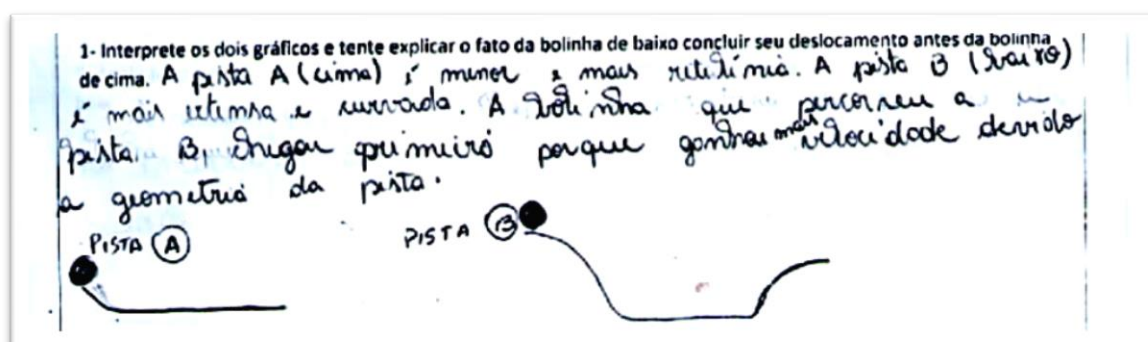 1- Interprete os dois gráficos e tente explicar o fato da bolinha de baixo concluir seu deslocamento antes da bolinha
de cima. A pista A (cima) é menor e mais retilínia. A pista B (baixo)
é mais extensa e curvada. A bolinha que percorreu a
pista B, chegou primeiro porque ganhou mais velocidade devido
a geometria da pista.
PISTA A
PISTA B